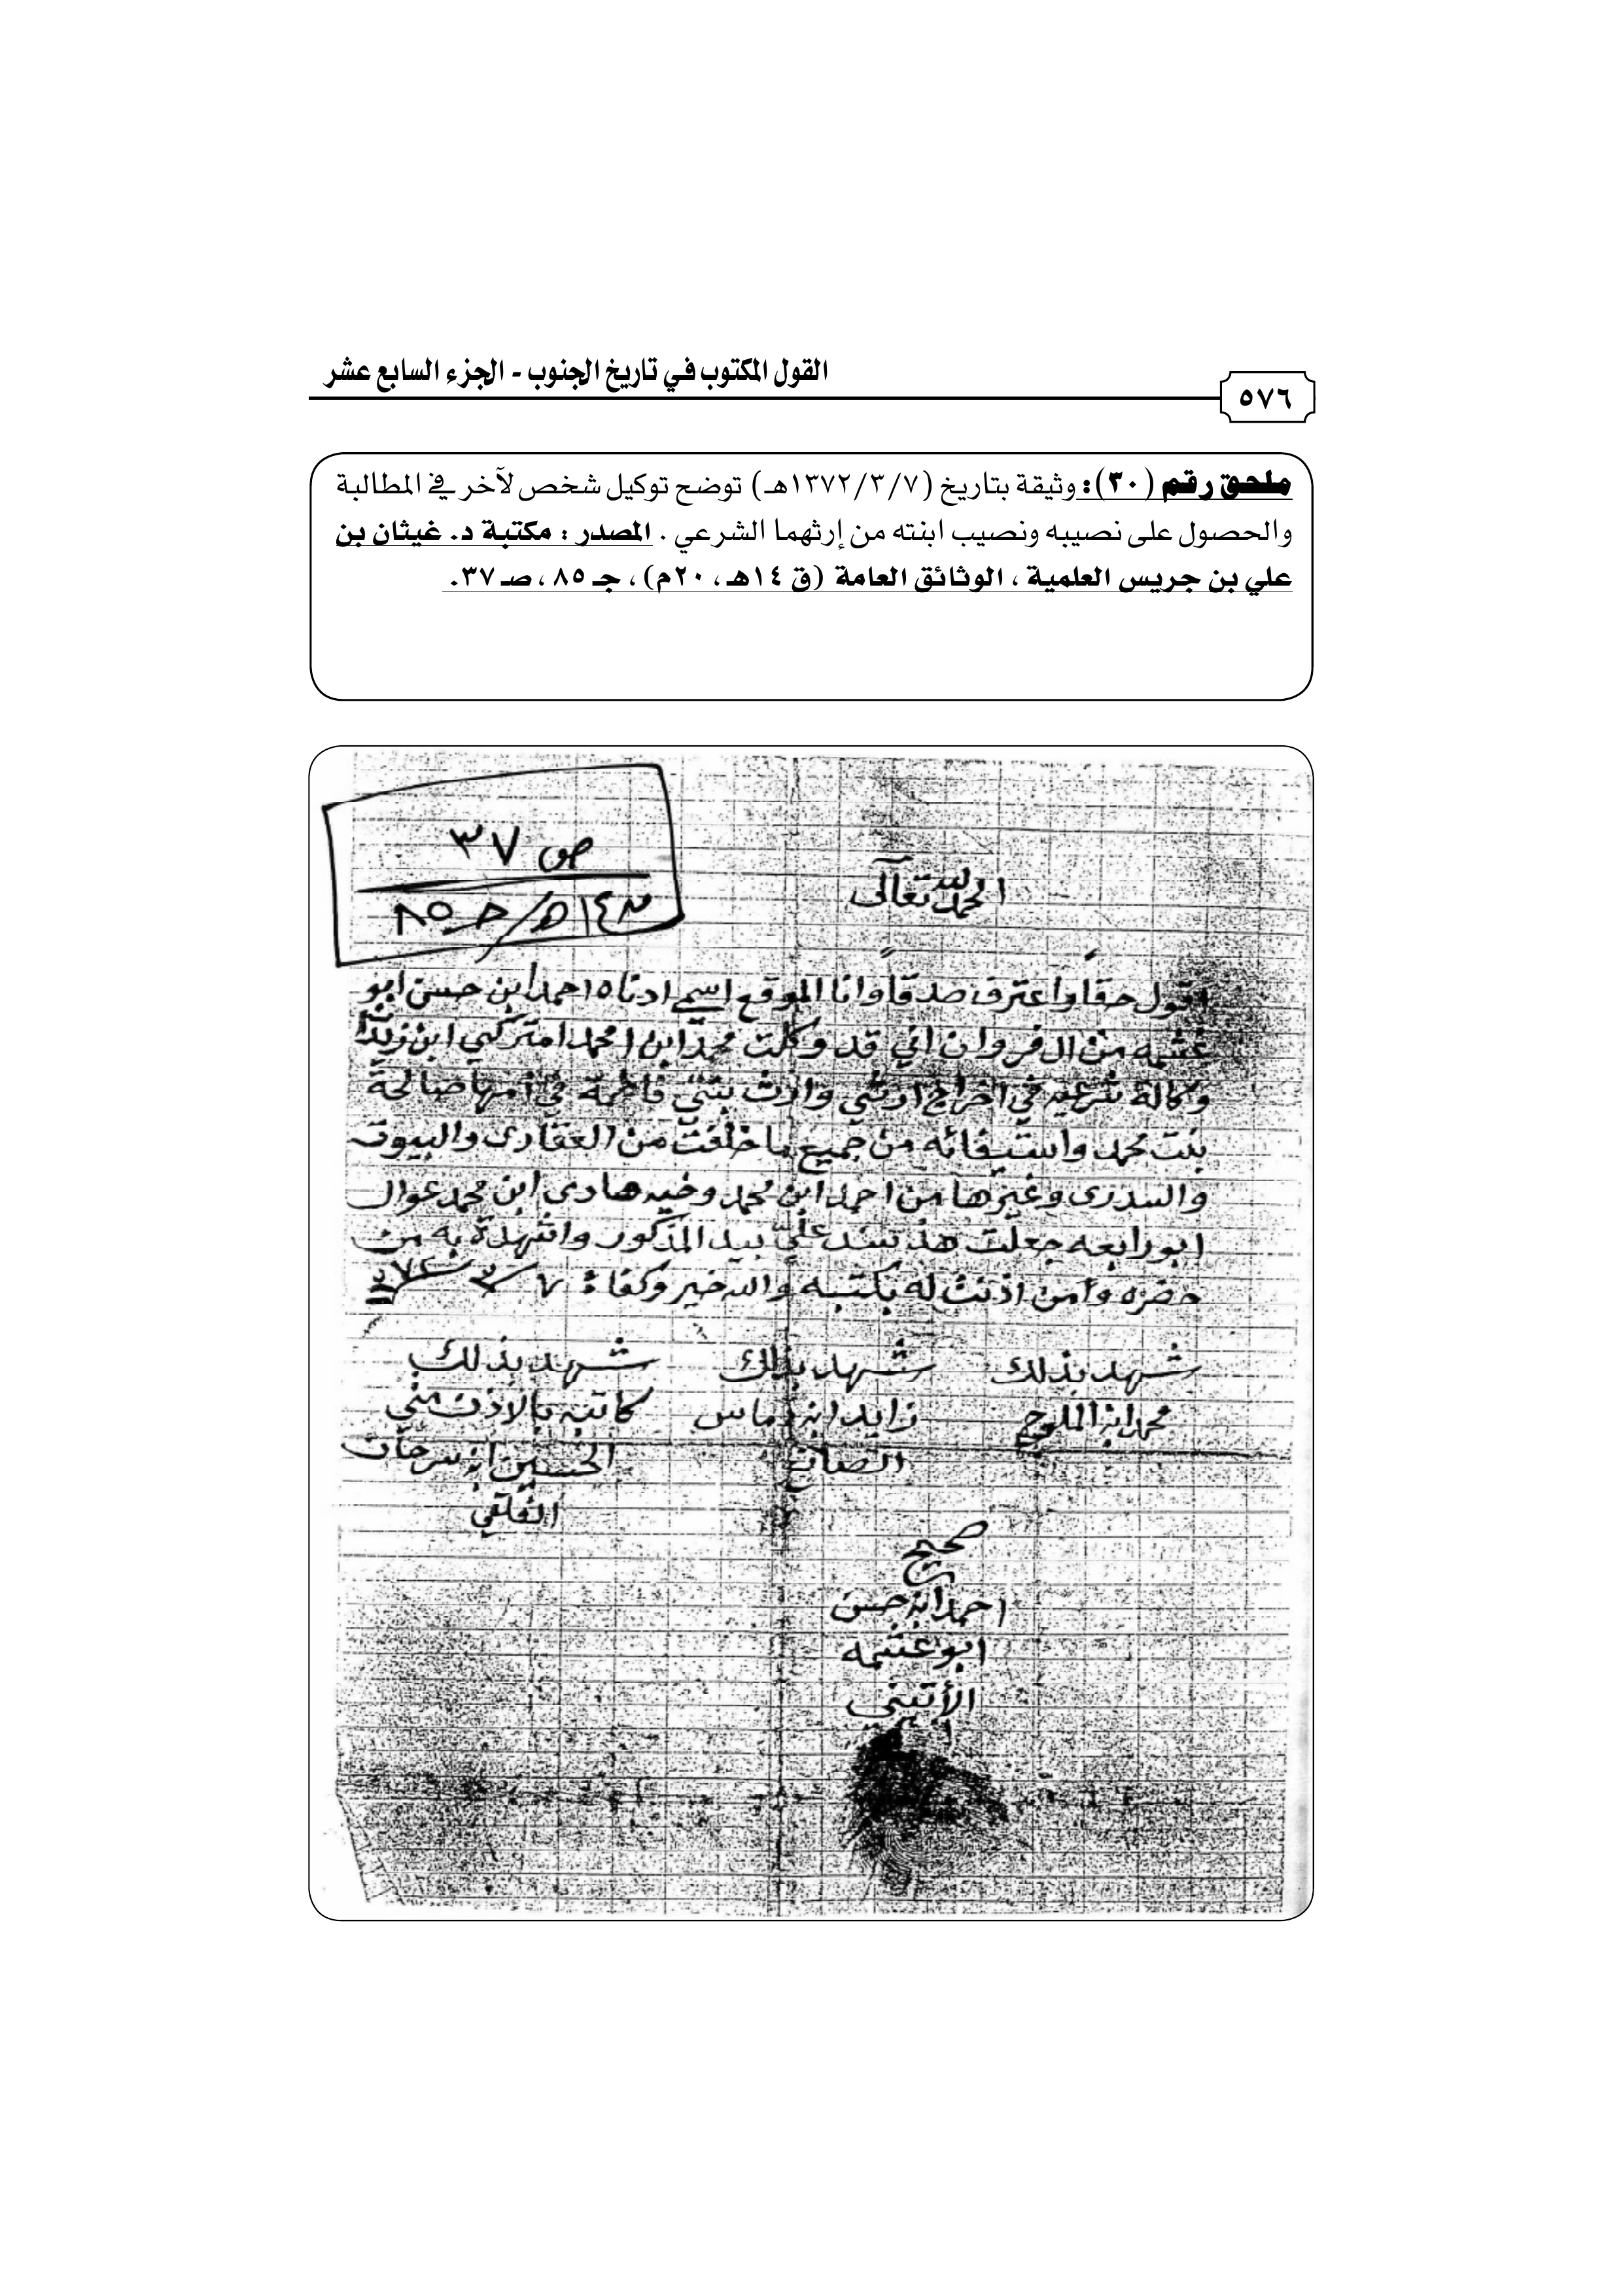 القول المكتوب في تاريخ الجنوب - الجزء السابع عشر
٥٧٦
ملحق رقم (٣٠): وثيقة بتاريخ (١٣٧٢/٣/٧هـ) توضح توكيل شخص لآخر في المطالبة
والحصول على نصيبه ونصيب ابنته من إرثهما الشرعي . المصدر : مكتبة د. غيثان بن
علي بن جريس العلمية ، الوثائق العامة (ق ١٤هـ ، ٢٠م) ، جـ ٨٥ ، صـ ٣٧.
ص ٣٧
١٤هـ/جـ ٨٥
الحمد لله تعالى
اقول حقاً واعترف صدقاً وانا الموقع اسمي ادناه احمد ابن حسن ابو
غثيمه من ال فروان اني قد وكلت محمد ابن امحمد امتركي ابن
وكالة شرعيه في اخراج ارثي وارث بنتي فاطمة في امها صالحة
بنت محمد واستيفائه من جميع ما خلفت من العقارى والبيوت
والسدرى وغيرها من احمد ابن محمد وخيه هادى ابن محمد عوال
ابو رابعه جعلت هذ سند علي بيد المذكور واشهدة به من
حضره وامن اذنت له بكتبه والله خير وكفا : ٧ / ٣ / ٧٢
شهد بذلك شهد بذلك شهد بذلك
محمد ابن زايد ابن كاتبه بالاذن مني
الحسين ابن سرحان
صحيح
احمد ابن حسن
ابو غثيمه